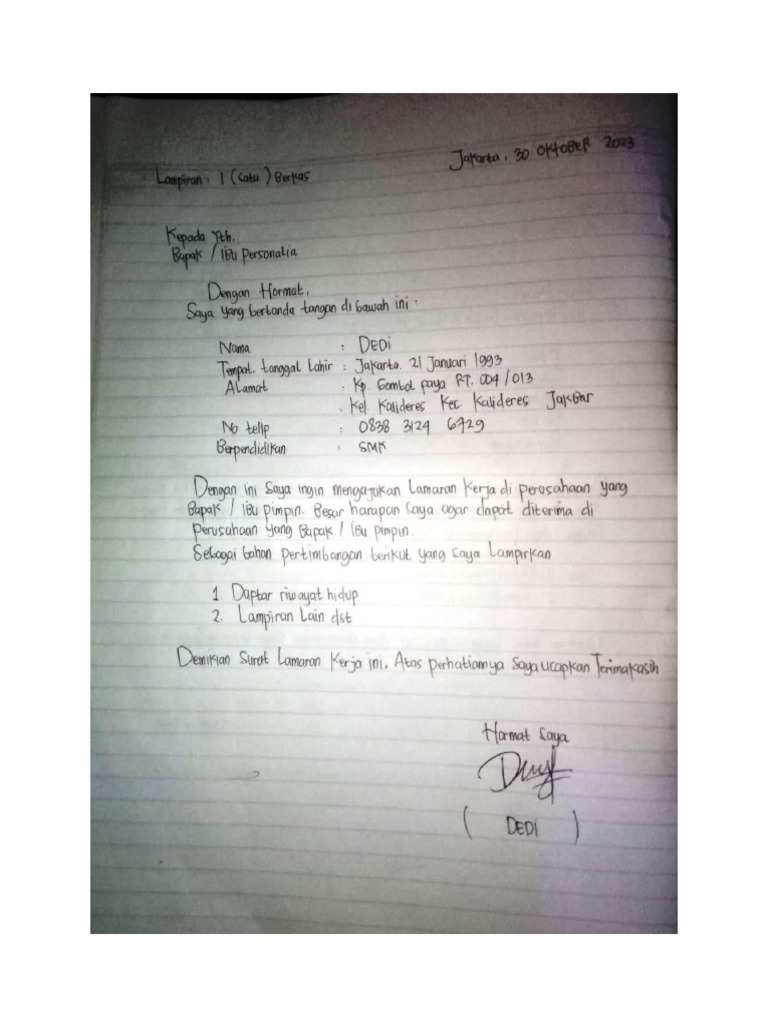 Jakarta, 30 OKTOBER 2023
Lampiran : 1 (Satu) Berkas
Kepada Yth.
Bapak / IBu Personalia
Dengan Hormat,
Saya yang bertanda tangan di bawah ini :
Nama : DEDi
Tempat, tanggal Lahir : Jakarta, 21 Januari 1993
ALamat : Kp. Gombol paya RT. 004 / 013
Kel Kalideres Kec. Kalideres JakBar
No telp : 0838 3124 6729
Berpendidikan : SMK
Dengan ini Saya ingin mengajukan Lamaran Kerja di perusahaan yang
Bapak / IBu pimpin. Besar harapan Saya agar dapat diterima di
perusahaan yang Bapak / IBu pimpin.
Sebagai bahan pertimbangan berikut yang Saya Lampirkan
1 Daptar riwayat hidup
2. Lampiran Lain dst
Demikian Surat Lamaran Kerja ini, Atas perhatiannya Saya ucapkan Terimakasih
Hormat Saya
( DEDI )